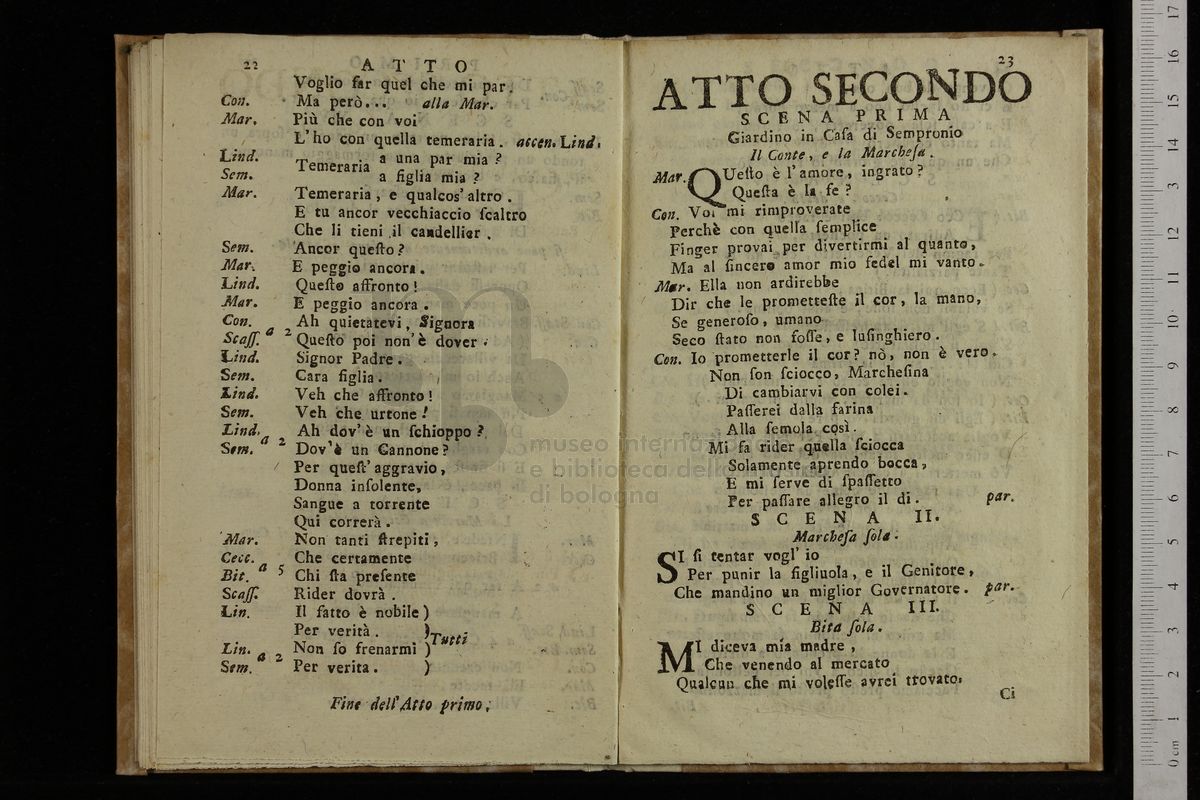 22 A T T O
Voglio far quel che mi par.
Con. Ma però... alla Mar.
Mar. Più che con voi
L'ho con quella temeraria. accen. Lind.
Lind. Temeraria a una par mia?
Sem. a figlia mia?
Mar. Temeraria, e qualcos'altro.
E tu ancor vecchiaccio ſcaltro
Che li tieni il candellier.
Sem. Ancor queſto?
Mar. E peggio ancora.
Lind. Queſto affronto!
Mar. E peggio ancora.
Con. Ah quietatevi, Signora
Scaſſ. a 2 Queſto poi non'è dover.
Lind. Signor Padre.
Sem. Cara figlia.
Lind. Veh che affronto!
Sem. Veh che urtone!
Lind. Ah dov'è un ſchioppo?
Sem. a 2 Dov'è un Cannone?
Per queſt'aggravio,
Donna inſolente,
Sangue a torrente
Qui correrà.
Mar. Non tanti ſtrepiti,
Cecc. Che certamente
Bit. a 5 Chi ſta preſente
Scaſſ. Rider dovrà.
Lin. Il fatto è nobile)
Per verità. )Tutti
Lin. Non ſo frenarmi )
Sem. a 2 Per verita. )
Fine dell'Atto primo.
23
ATTO SECONDO
SCENA PRIMA
Giardino in Caſa di Sempronio
Il Conte, e la Marcheſa.
Mar. QUeſto è l'amore, ingrato?
Queſta è la fe?
Con. Voi mi rimproverate
Perchè con quella ſemplice
Finger provai per divertirmi al quanto,
Ma al ſincero amor mio fedel mi vanto.
Mar. Ella non ardirebbe
Dir che le prometteſte il cor, la mano,
Se generoſo, umano
Seco ſtato non foſſe, e luſinghiero.
Con. Io prometterle il cor? nò, non è vero.
Non ſon ſciocco, Marcheſina
Di cambiarvi con colei.
Paſſerei dalla farina
Alla ſemola così.
Mi fa rider quella ſciocca
Solamente aprendo bocca,
E mi ſerve di ſpaſſetto
Per paſſare allegro il di. par.
SCENA II.
Marcheſa ſola.
SI ſi tentar vogl'io
Per punir la figliuola, e il Genitore,
Che mandino un miglior Governatore. par.
SCENA III.
Bita ſola.
MI diceva mia madre,
Che venendo al mercato
Qualcun che mi voleſſe avrei trovato.
Ci
museo internazionale
e biblioteca della musica
di bologna
0 cm 1 2 3 4 5 6 7 8 9 10 11 12 13 14 15 16 17